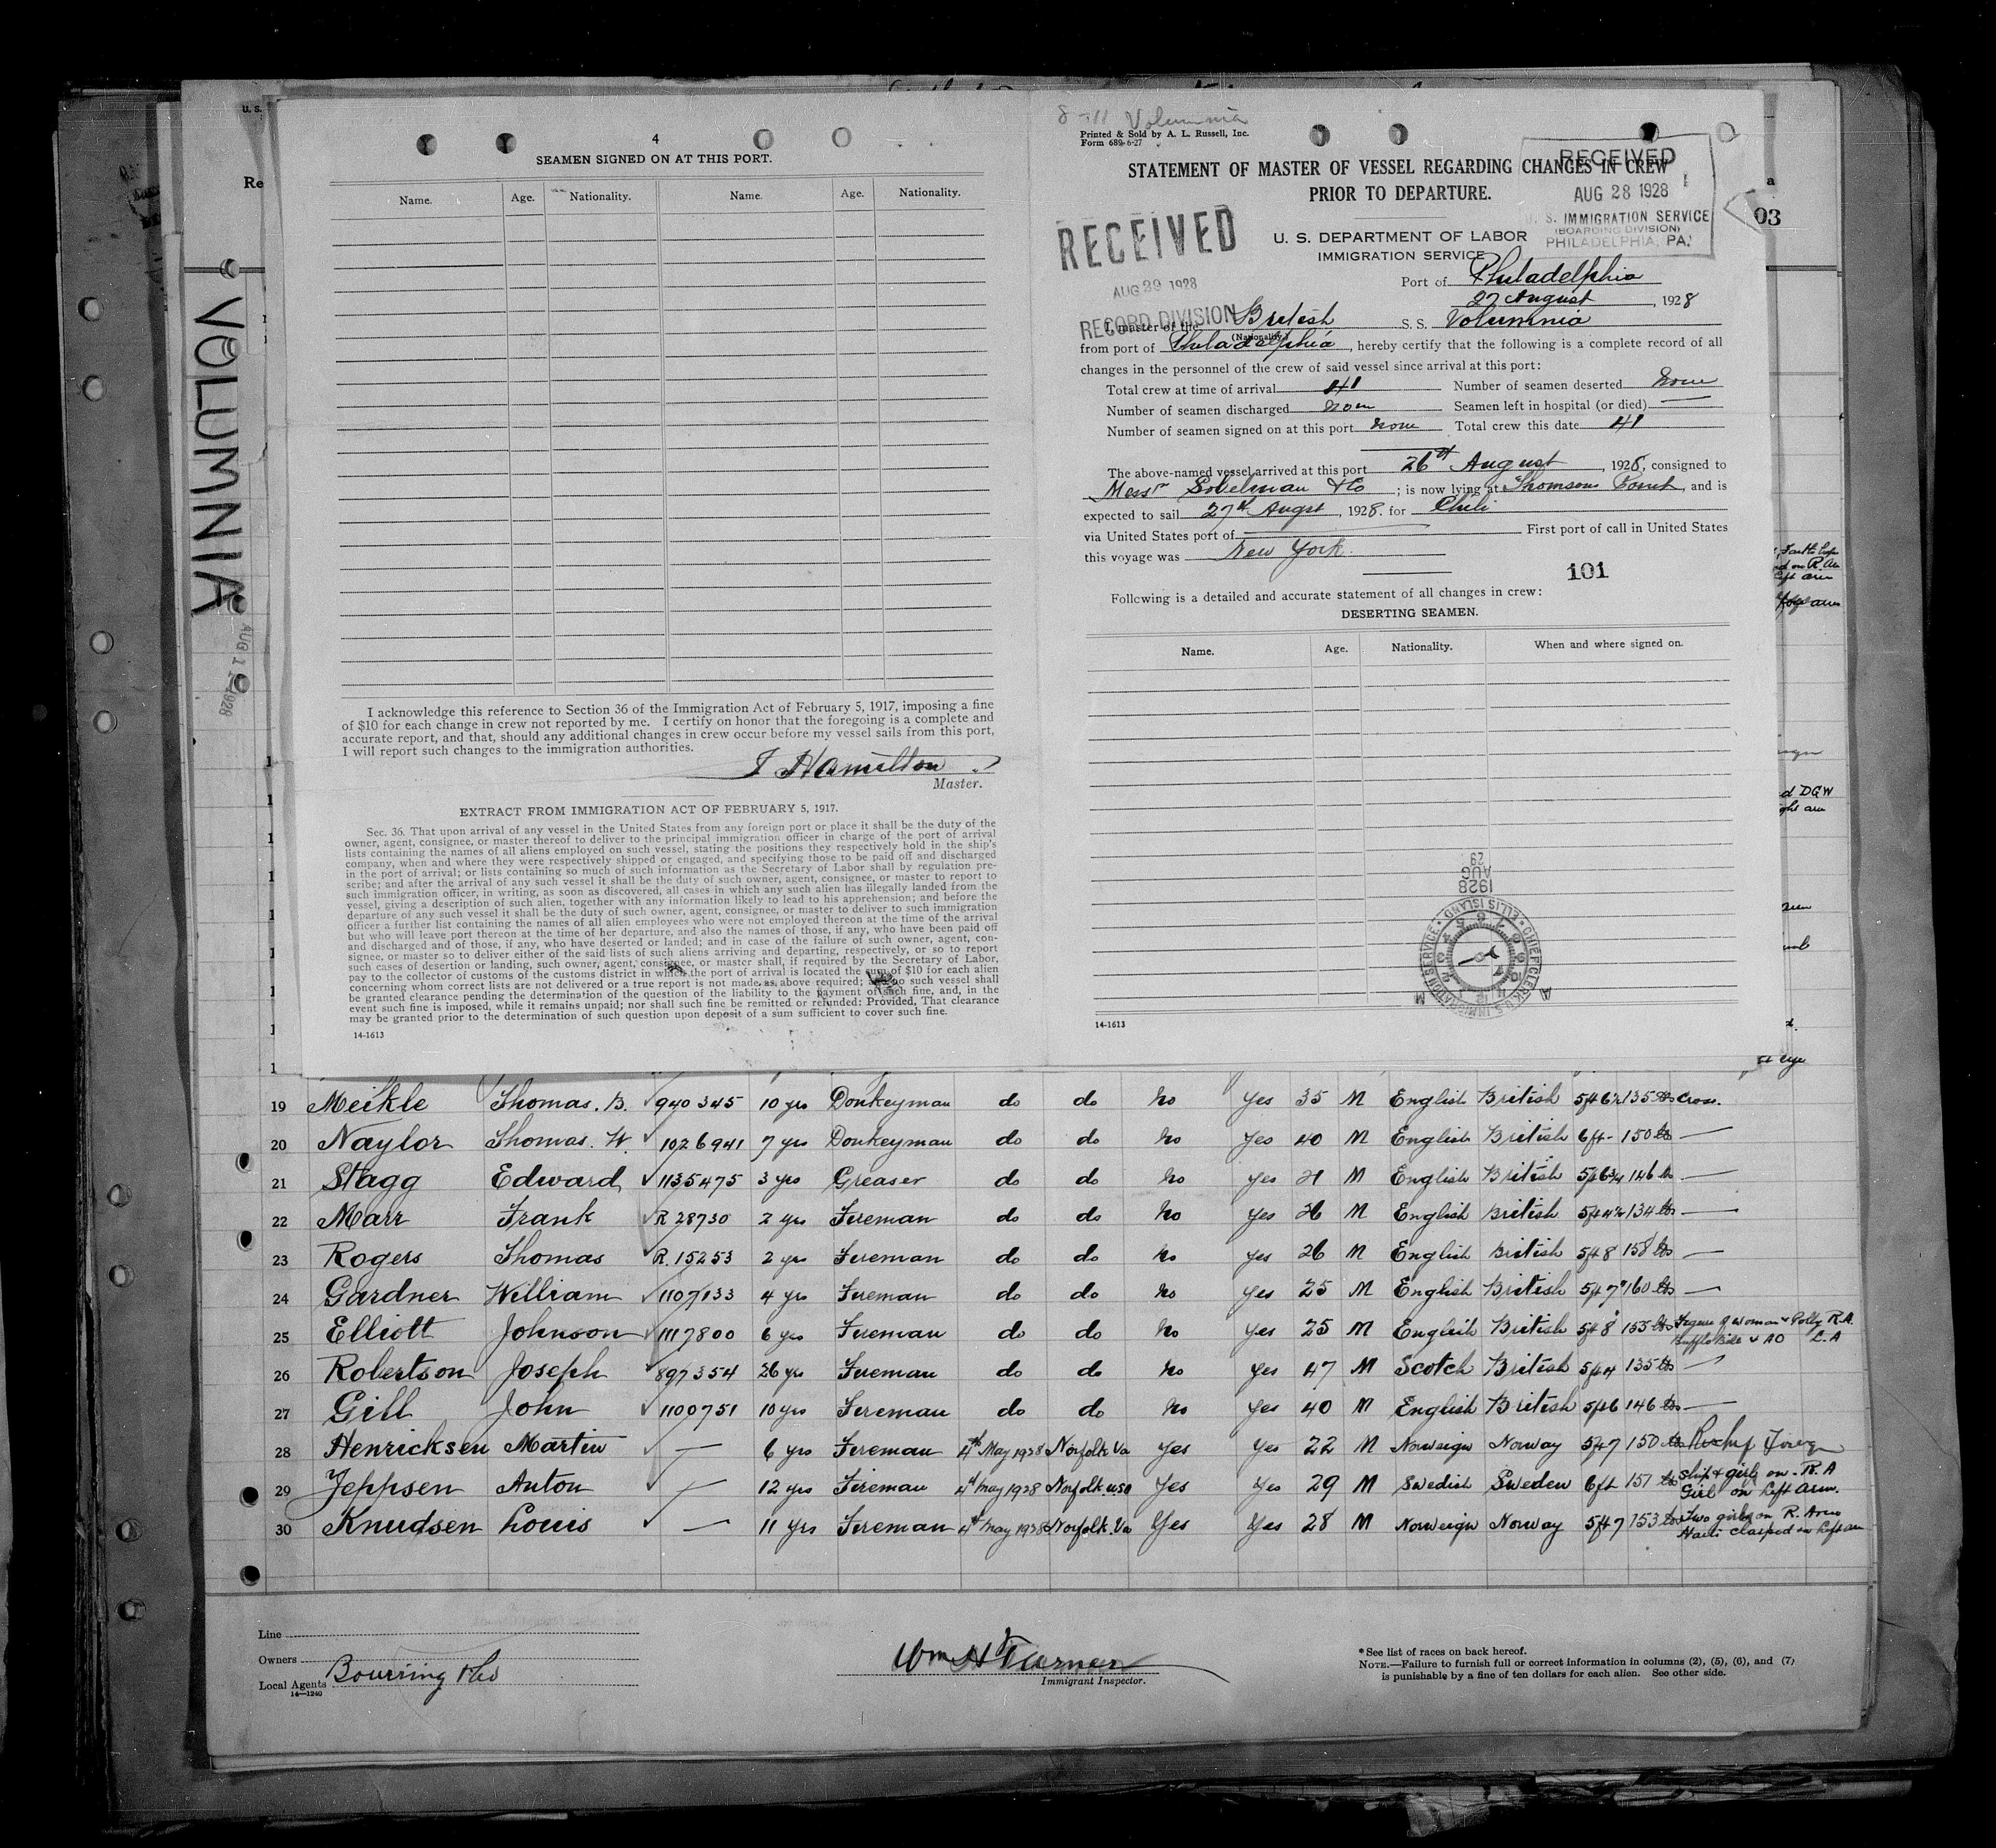 4
SEAMEN SIGNED ON AT THIS PORT.
Name. Age. Nationality. Name. Age. Nationality.
I acknowledge this reference to Section 36 of the Immigration Act of February 5, 1917, imposing a fine
of $10 for each change in crew not reported by me. I certify on honor that the foregoing is a complete and
accurate report, and that, should any additional changes in crew occur before my vessel sails from this port,
I will report such changes to the immigration authorities.
Hamilton
Master.
EXTRACT FROM IMMIGRATION ACT OF FEBRUARY 5, 1917.
Sec. 36. That upon arrival of any vessel in the United States from any foreign port or place it shall be the duty of the
owner, agent, consignee, or master thereof to deliver to the principal immigration officer in charge of the port of arrival
lists containing the names of all aliens employed on such vessel, stating the positions they respectively hold in the ship's
company, when and where they were respectively shipped or engaged, and specifying those to be paid off and discharged
in the port of arrival; or lists containing so much of such information as the Secretary of Labor shall by regulation pre-
scribe; and after the arrival of any such vessel it shall be the duty of such owner, agent, consignee, or master to report to
such immigration officer, in writing, as soon as discovered, all cases in which any such alien has illegally landed from the
vessel, giving a description of such alien, together with any information likely to lead to his apprehension; and before the
departure of any such vessel it shall be the duty of such owner, agent, consignee, or master to deliver to such immigration
officer a further list containing the names of all alien employees who were not employed thereon at the time of the arrival
but who will leave port thereon at the time of her departure, and also the names of those, if any, who have been paid off
and discharged and of those, if any, who have deserted or landed; and in case of the failure of such owner, agent, con-
signee, or master so to deliver either of the said lists of such aliens arriving and departing, respectively, or so to report
such cases of desertion or landing, such owner, agent, consignee, or master shall, if required by the Secretary of Labor,
pay to the collector of customs of the customs district in which the port of arrival is located the sum of $10 for each alien
concerning whom correct lists are not delivered or a true report is not made as above required; and no such vessel shall
be granted clearance pending the determination of the question of the liability to the payment of such fine, and, in the
event such fine is imposed, while it remains unpaid; nor shall such fine be remitted or refunded: Provided, That clearance
may be granted prior to the determination of such question upon deposit of a sum sufficient to cover such fine.
14-1613
Volumnia
Printed & Sold by A. L. Russell, Inc.
Form 689-6-27
STATEMENT OF MASTER OF VESSEL REGARDING CHANGES IN CREW
PRIOR TO DEPARTURE.
RECEIVED
AUG 28 1928
U. S. IMMIGRATION SERVICE
(BOARDING DIVISION)
PHILADELPHIA, PA.
RECEIVED
AUG 29 1928
RECORD DIVISION
U. S. DEPARTMENT OF LABOR
IMMIGRATION SERVICE
Port of Philadelphia
27 August, 1928
I, master of the British S. S. Volumnia
(Nationality)
from port of Philadelphia, hereby certify that the following is a complete record of all
changes in the personnel of the crew of said vessel since arrival at this port:
Total crew at time of arrival 41 Number of seamen deserted None
Number of seamen discharged None Seamen left in hospital (or died) —
Number of seamen signed on at this port None Total crew this date 41
The above-named vessel arrived at this port 26th August, 1928, consigned to
Messrs & Co; is now lying at Thomsons Point, and is
expected to sail 27th Augst, 1928. for Chili
via United States port of — First port of call in United States
this voyage was New York.
101
Following is a detailed and accurate statement of all changes in crew:
DESERTING SEAMEN.
Name. Age. Nationality. When and where signed on.
29
AUG
1928
CHIEF CLERK U.S. IMMIGRATION SERVICE ELLIS ISLAND
14-1613
VOLUMNIA
03
19 Meikle Thomas. B. 940345 10 yrs Donkeyman do do No Yes 35 M English British 5ft 6½ 135 lbs Cross.
20 Naylor Thomas. W. 1026941 7 yrs Donkeyman do do No Yes 40 M English British 6ft - 150 lbs —
21 Stagg Edward 1135475 3 yrs Greaser do do No Yes 21 M English British 5ft 6¾ 146 lbs —
22 Marr Frank R 28730 2 yrs Fireman do do No Yes 26 M English British 5ft 4½ 134 lbs —
23 Rogers Thomas R. 15253 2 yrs Fireman do do No Yes 26 M English British 5ft 8 158 lbs —
24 Gardner William 1107133 4 yrs Fireman do do No Yes 25 M English British 5ft 7" 160 lbs —
25 Elliott Johnson 1117800 6 yrs Fireman do do No Yes 25 M English British 5ft 8 155 lbs Figure of Woman & Polly R.A.
L.A
26 Robertson Joseph 897354 26 yrs Fireman do do No Yes 47 M Scotch British 5ft 4 135 lbs —
27 Gill John 1100751 10 yrs Fireman do do No Yes 40 M English British 5ft 6 146 lbs —
28 Henricksen Martin — 6 yrs Fireman 4th May 1928 Norfolk Va Yes Yes 22 M Norweign Norway 5ft 7 150 lbs
29 Jeppsen Anton — 12 yrs Fireman 4th May 1928 Norfolk. USA Yes Yes 29 M Swedish Sweden 6ft 157 lbs Ship & girl on R. A
Girl on left Arm.
30 Knudsen Louis — 11 yrs Fireman 4th May 1928 Norfolk. Va Yes Yes 28 M Norweign Norway 5ft 7 153 lbs Two girls on R. Arm
clasped on left arm
Line
Owners
Local Agents Bowring & Co
14-1240
Wm H Turner
Immigrant Inspector.
*See list of races on back hereof.
NOTE.—Failure to furnish full or correct information in columns (2), (5), (6), and (7)
is punishable by a fine of ten dollars for each alien. See other side.